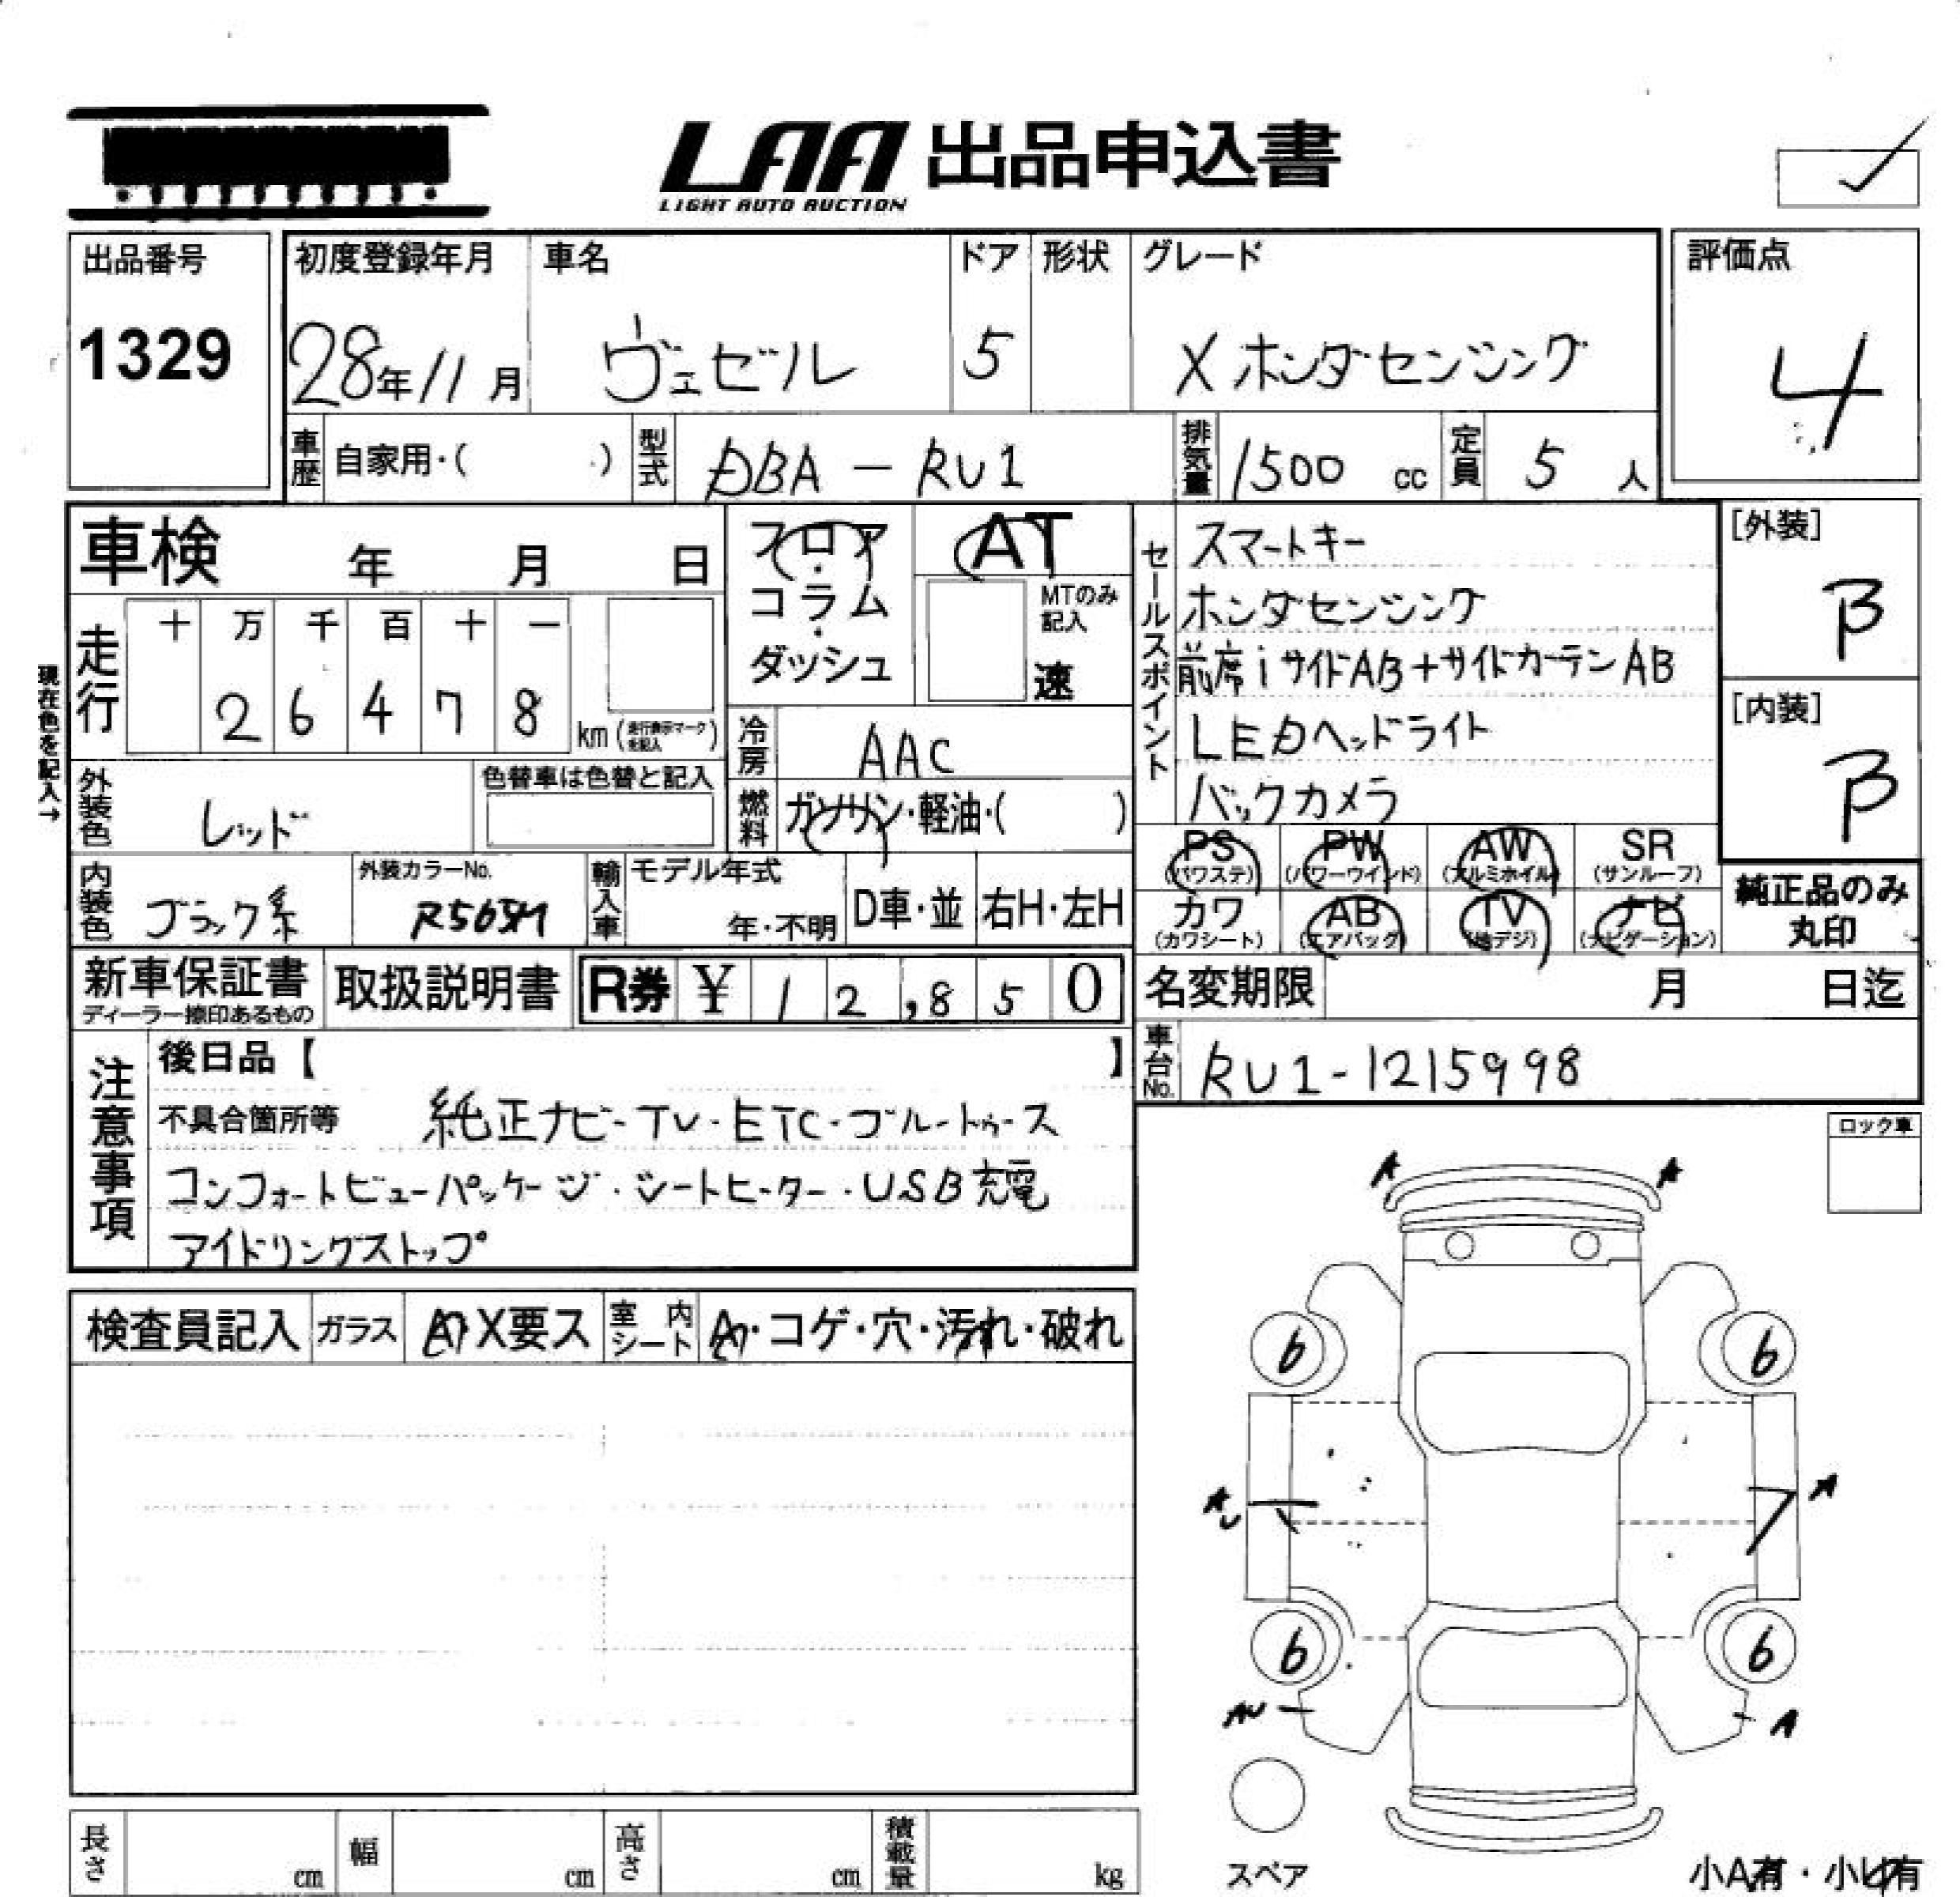 LAA 出品申込書
LIGHT AUTO AUCTION
出品番号 初度登録年月 車名 ドア 形状 グレード 評価点
1329 28年11月 ヴェゼル 5 X ホンダセンシング 4
車歴 自家用・( ) 型式 DBA-RU1 排気量 1500 cc 定員 5 人
車検 年 月 日
フロア・コラム・ダッシュ
AT
MTのみ記入
速
セールスポイント
スマートキー
ホンダセンシング
前席iサイドAB+サイドカーテンAB
LEDヘッドライト
バックカメラ
[外装]
B
[内装]
B
現在色を記入→
走行 十 万 千 百 十 一
2 6 4 7 8 km (走行表示マークを記入)
冷房 AAC
外装色 レッド 色替車は色替と記入
燃料 ガソリン・軽油・( )
内装色 ブラック系 外装カラーNo. 輸入車 モデル年式 年・不明 D車・並 右H・左H
PS (パワステ) PW (パワーウインド) AW (アルミホイル) SR (サンルーフ)
カワ (カワシート) AB (エアバッグ) TV (地デジ) ナビ (ナビゲーション)
純正品のみ丸印
新車保証書 ディーラー捺印あるもの 取扱説明書 R券 ¥ 12,850
名変期限 月 日迄
車台No. RU1-1215998
注意事項
後日品【 】
不具合箇所等 純正ナビ・TV・ETC・ブルートゥース
コンフォートビューパッケージ・シートヒーター・USB充電
アイドリングストップ
ロック車
A A
検査員記入 ガラス A X要ス 室内シート A・コゲ・穴・汚れ・破れ
6 6
A A
6 6
AU A
スペア
小A有・小U有
長さ cm 幅 cm 高さ cm 積載量 kg